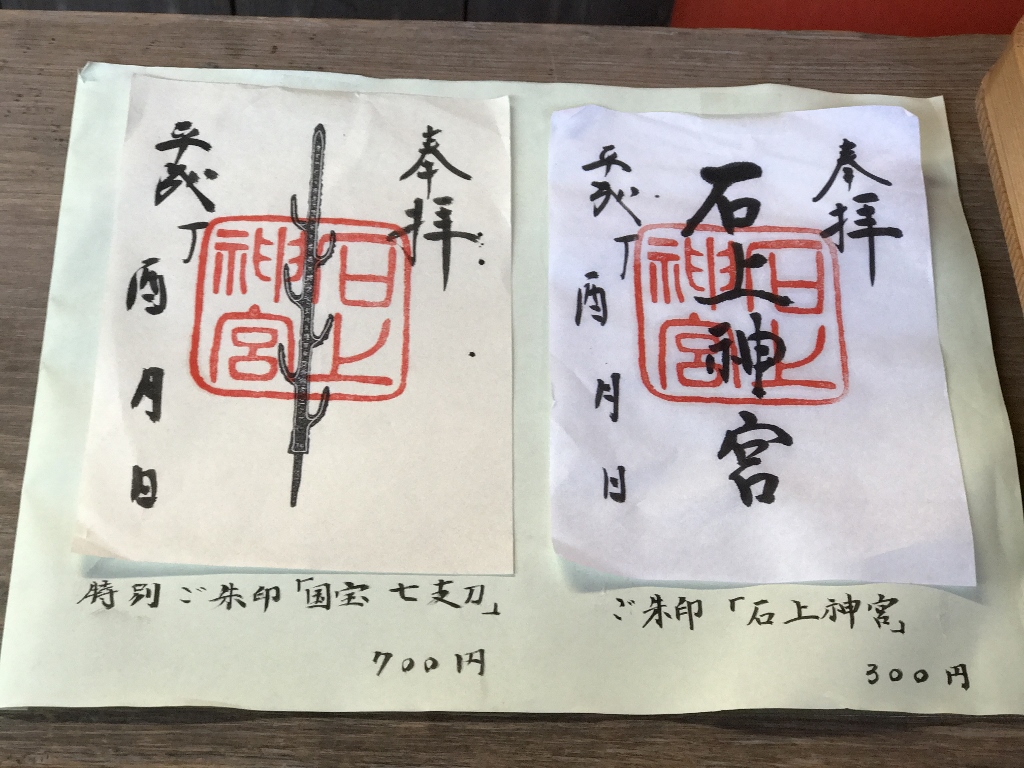 奉拝
石上神宮
平成 丁酉 月 日
特別ご朱印「国宝 七支刀」
700円
奉拝
石上神宮
石上神宮
平成 丁酉 月 日
ご朱印「石上神宮」
300円